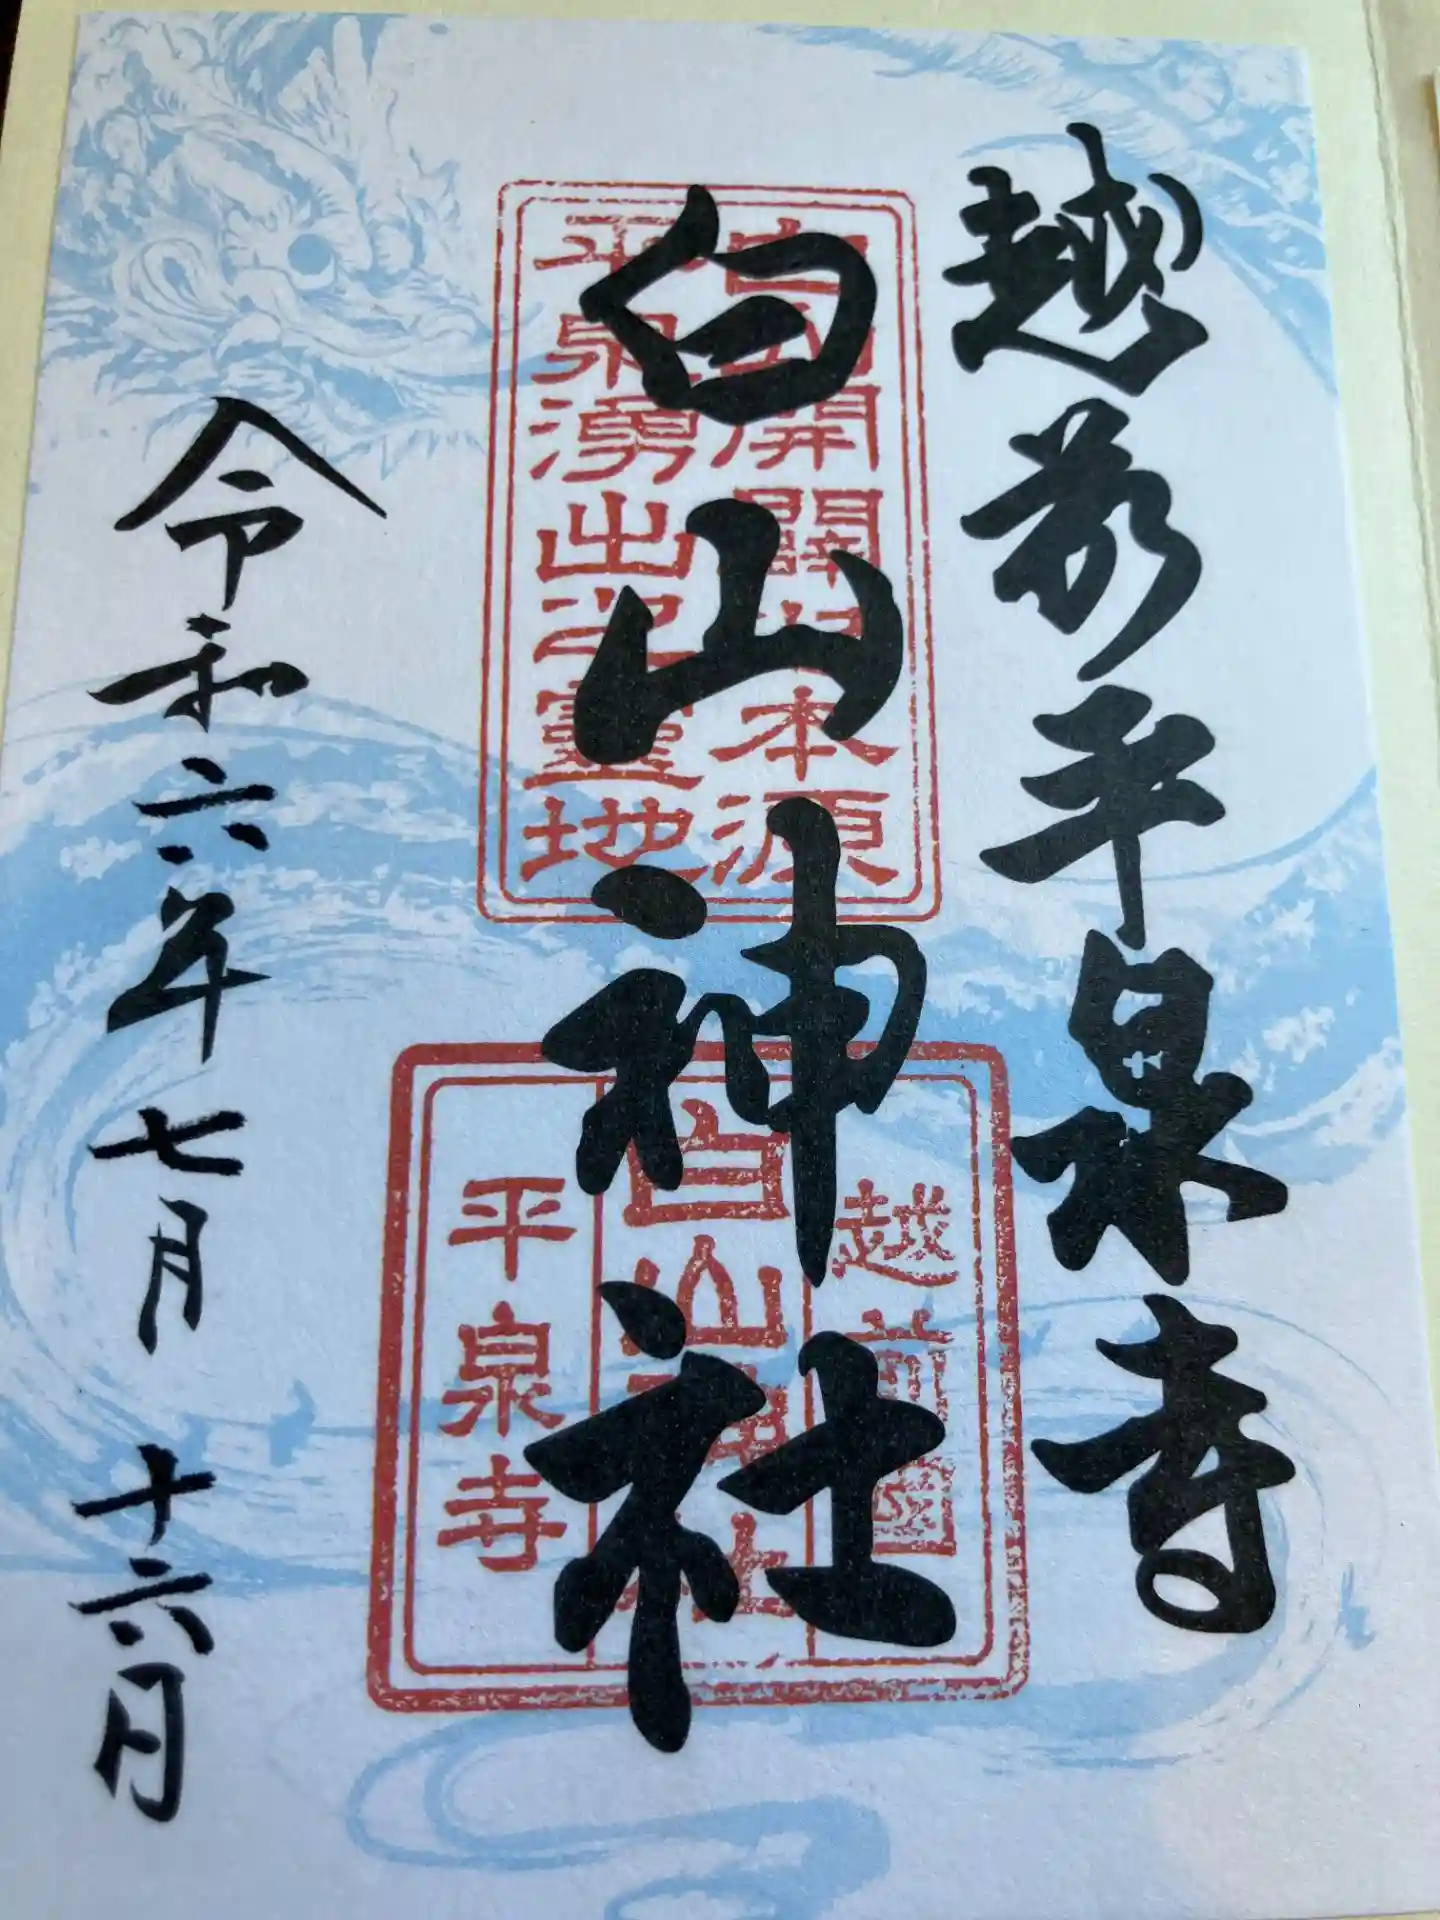 越前平泉寺
白山神社
令和六年七月十六日
本源
平泉湧出之靈地
越前國
白山神社
平泉寺